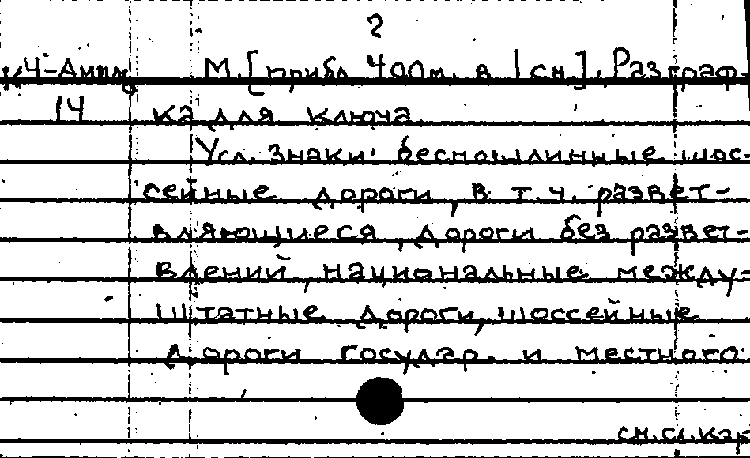 2
К4-Амил М. [прибл. 400м. в 1см]. Разграф-
14 ка для ключа
Усл. знаки: беспошлинные шос-
сейные дороги, в т.ч. развет-
вляющиеся, дороги без развет-
влений, национальные между-
штатные дороги, шоссейные
дороги государ. и местного
см.сл.кар